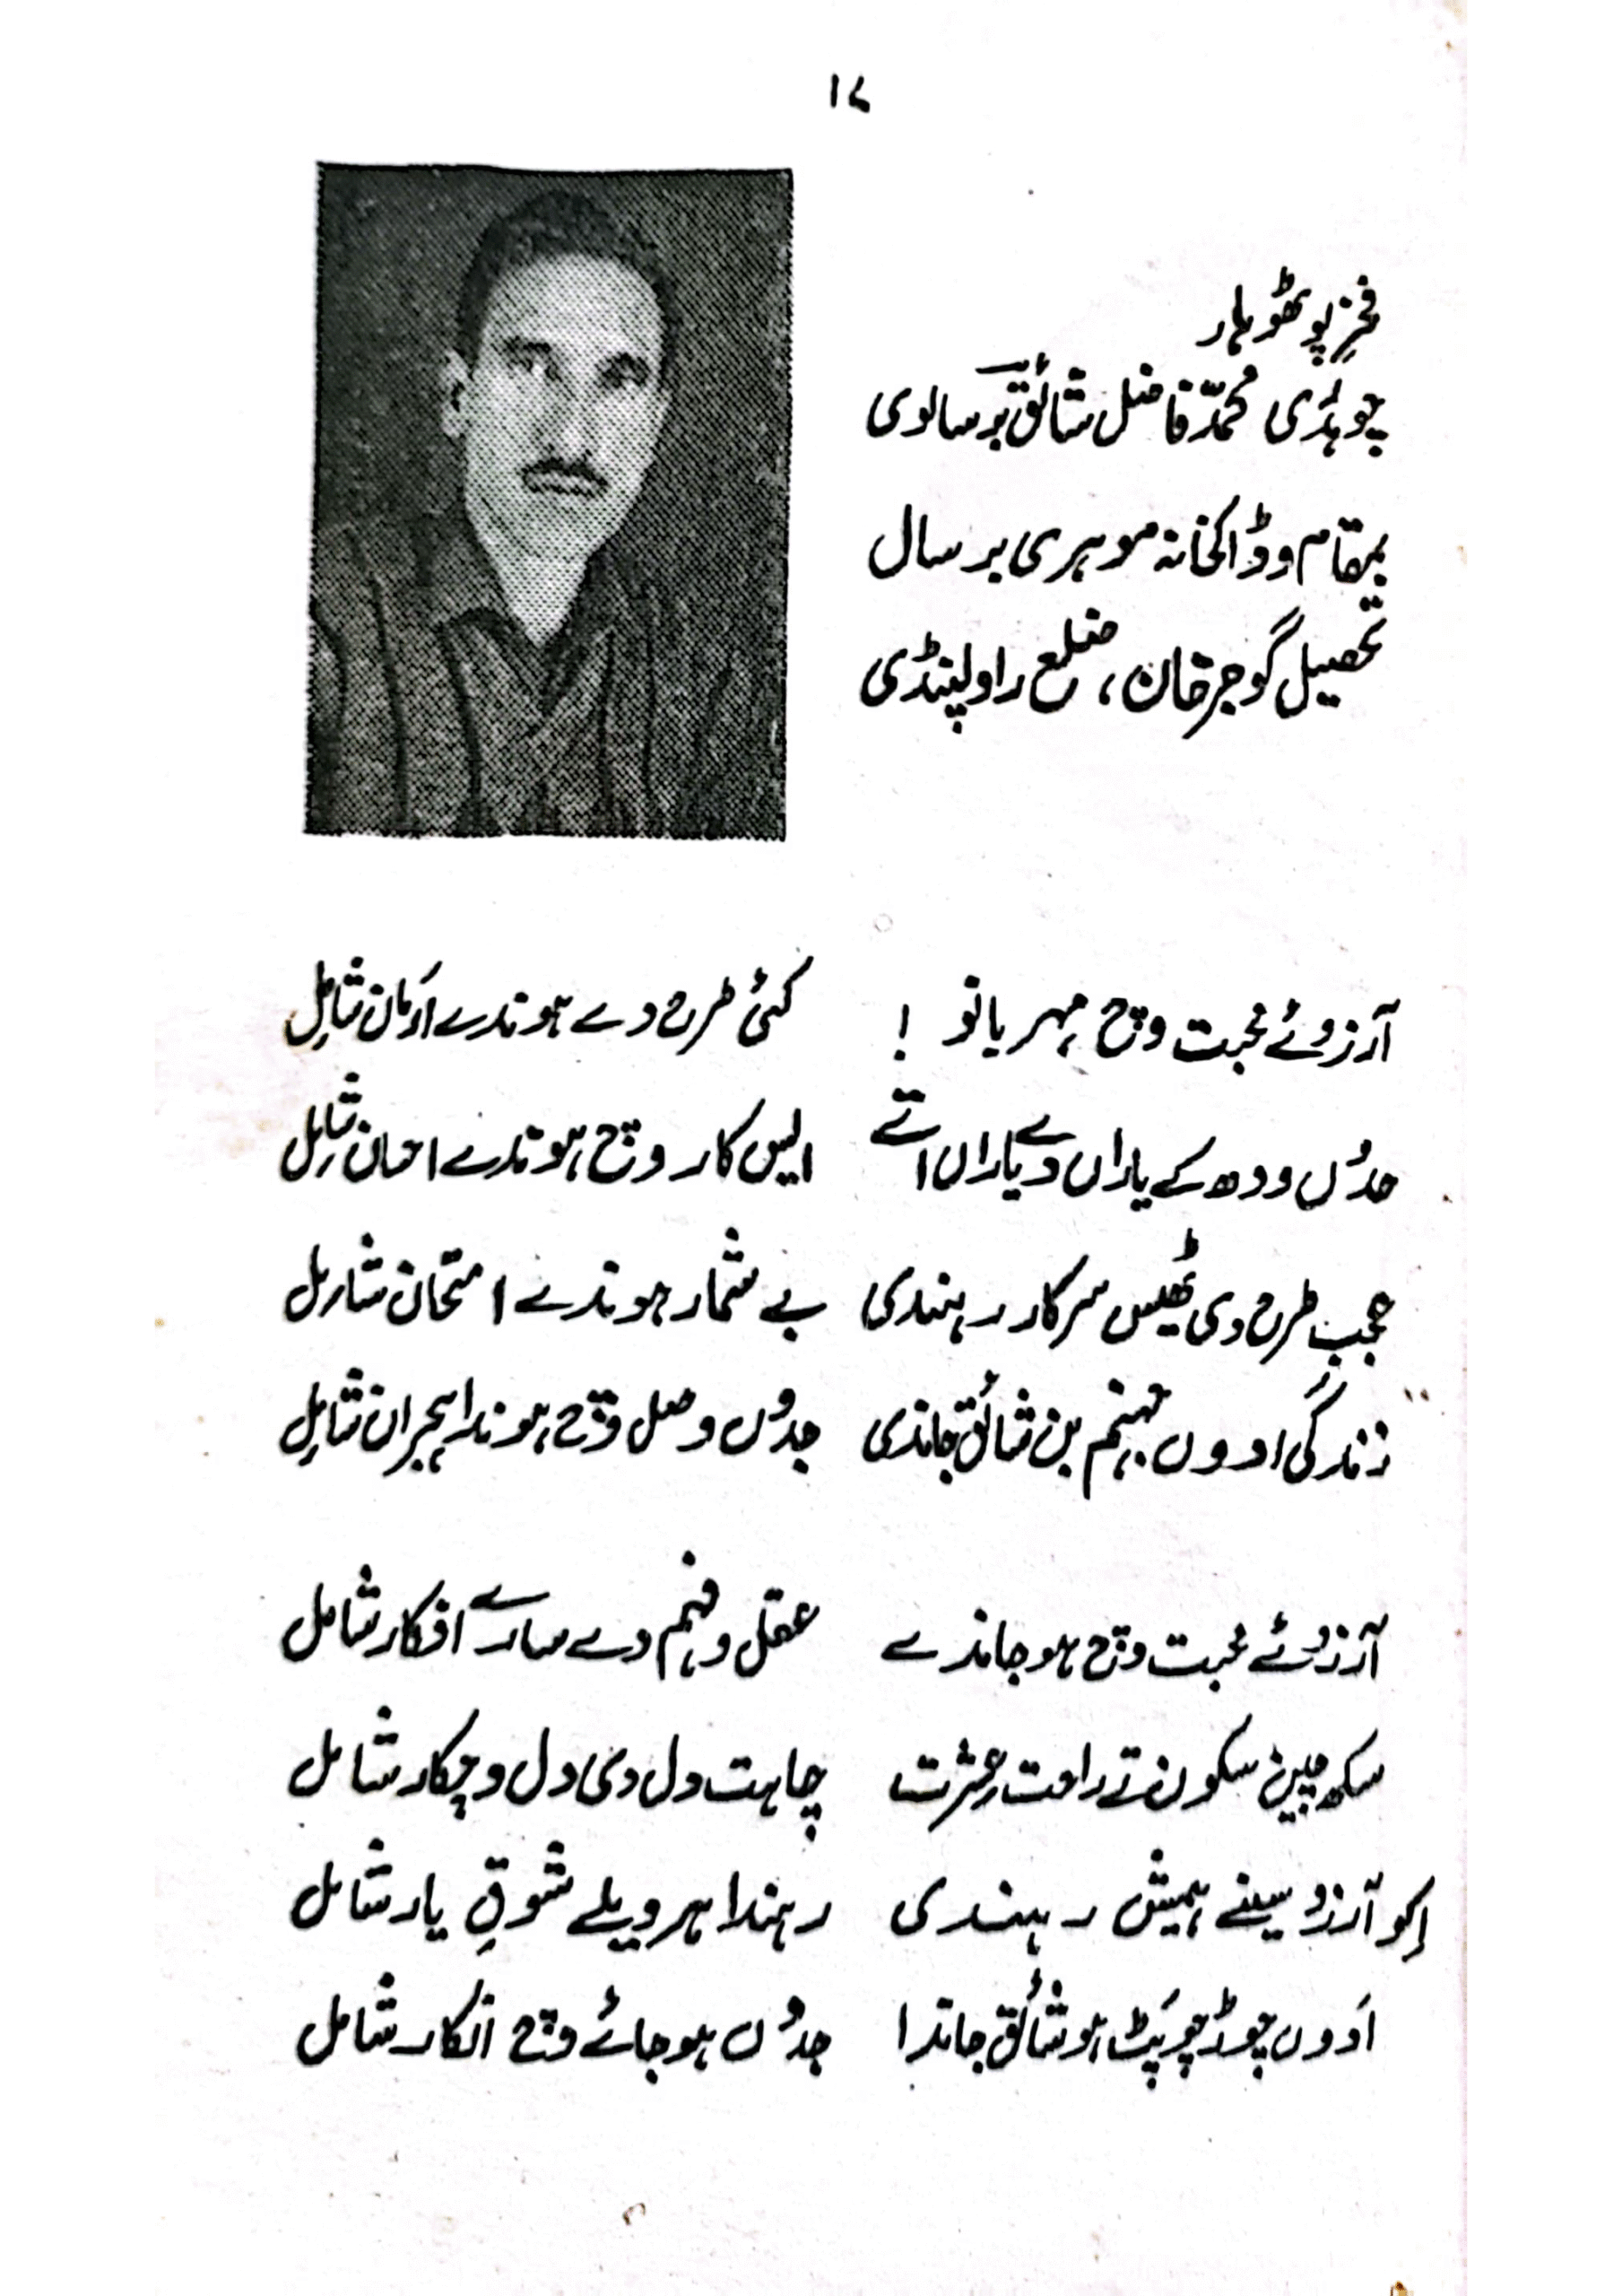 ۱۷
فخرِ پوٹھوہار
چوہدری محمّد فاضل شائق برسالوی
بمقام و ڈاکخانہ موہری برسال
تحصیل گوجرخان، ضلع راولپنڈی
آرزوئے محبت وچ مہربانو ! کئی طرح دے ہوندے اَرمان شامِل
حدُوں ودھ کے یاراں دے یاراں اتے ایس کار وچ ہوندے احسان شامِل
عجب طرح دی ٹھیس سرکار رہندی بے شمار ہوندے امتحان شامِل
زندگی اودوں جہنم بن شائق جاندی جدوں وصل وچ ہوندا ہجران شامِل
آرزوئے محبت وچ ہو جاندے عقل و فہم دے سارے افکار شامل
سکھ چین سکون تے راحت عشرت چاہت دل دی دل وچکار شامل
اِکو آرزو سینے ہمیش رہندی رہندا ہر ویلے شوقِ یار شامل
اَودوں چوڑ چوپَٹ ہو شائق جاندا جدُوں ہو جائے وچ انکار شامل